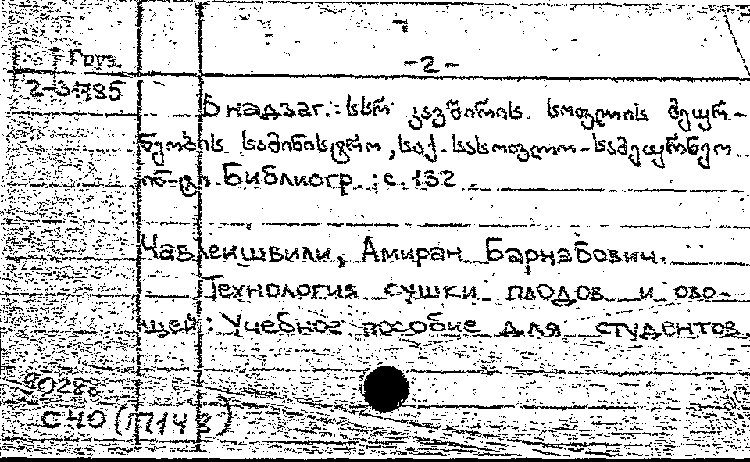 Груз.
-2-
2-3485
В надзаг.: სსრ კავშირის სოფლის მეურ-
ნეობის სამინისტრო, საქ. სასოფლო-სამეურნეო
ინ-ტი. Библиогр.: с. 132
Чавлеишвили, Амиран Барнабович.
Технология сушки плодов и ово-
щей: Учебное пособие для студентов
80288
С40 (П148)